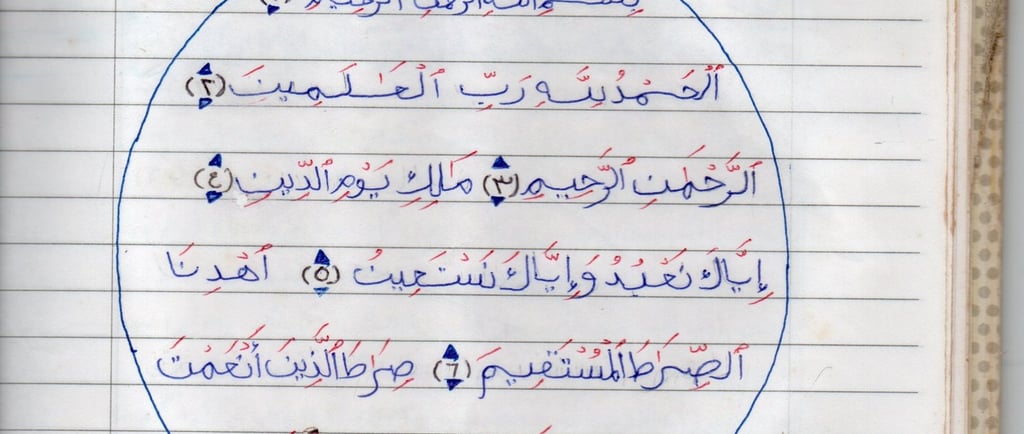 بِسْمِ ٱللَّهِ ٱلرَّحْمَٰنِ ٱلرَّحِيمِ
ٱلْحَمْدُ لِلَّهِ رَبِّ ٱلْعَٰلَمِينَ (٢)
ٱلرَّحْمَٰنِ ٱلرَّحِيمِ (٣) مَٰلِكِ يَوْمِ ٱلدِّينِ (٤)
إِيَّاكَ نَعْبُدُ وَإِيَّاكَ نَسْتَعِينُ (٥) ٱهْدِنَا
ٱلصِّرَٰطَ ٱلْمُسْتَقِيمَ (٦) صِرَٰطَ ٱلَّذِينَ أَنْعَمْتَ